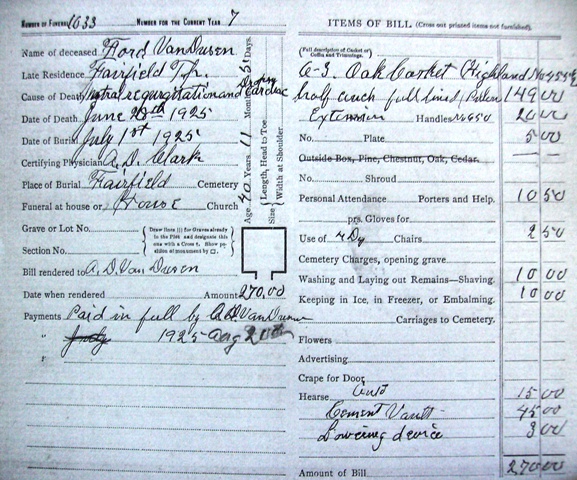 NUMBER OF FUNERAL 1033 NUMBER FOR THE CURRENT YEAR 7
Name of deceased Ford VanDusen
Late Residence Fairfield Tp.
Cause of Death Mitral regurgitation and Dropsy Cardiac
Date of Death June 28th 1925
Date of Burial July 1st 1925
Certifying Physician A. D. Clark
Place of Burial Fairfield Cemetery
Funeral at house or House Church
Grave or Lot No.
Draw Lines ||| for Graves already in the Plot and designate this one with a Cross †. Show position of monument by □.
Section No.
Bill rendered to A. D. Van Dusen
Date when rendered Amount 270.00
Payments Paid in full by A. D. VanDusen
" July 1925 Aug 20th
"
Age 40 Years 11 Months Days.
Size { Length, Head to Toe
Width at Shoulder
ITEMS OF BILL (Cross out printed items not furnished).
(Full description of Casket or Coffin and Trimmings.
6-3. Oak Casket Highland No
half couch full lined 149 00
Extension Handles No 650 20 00
No. Plate 5 00
Outside Box, Pine, Chestnut, Oak, Cedar. — —
No. Shroud
Personal Attendance Porters and Help. 10 50
prs. Gloves for
Use of 4 Dy Chairs 2 50
Cemetery Charges, opening grave
Washing and Laying out Remains—Shaving. 10 00
Keeping in Ice, in Freezer, or Embalming. 10 00
Carriages to Cemetery.
Flowers
Advertising
Crape for Door
Hearse Auto 15 00
Cement Vault 45 00
Lowering device 3 00
Amount of Bill 270 00